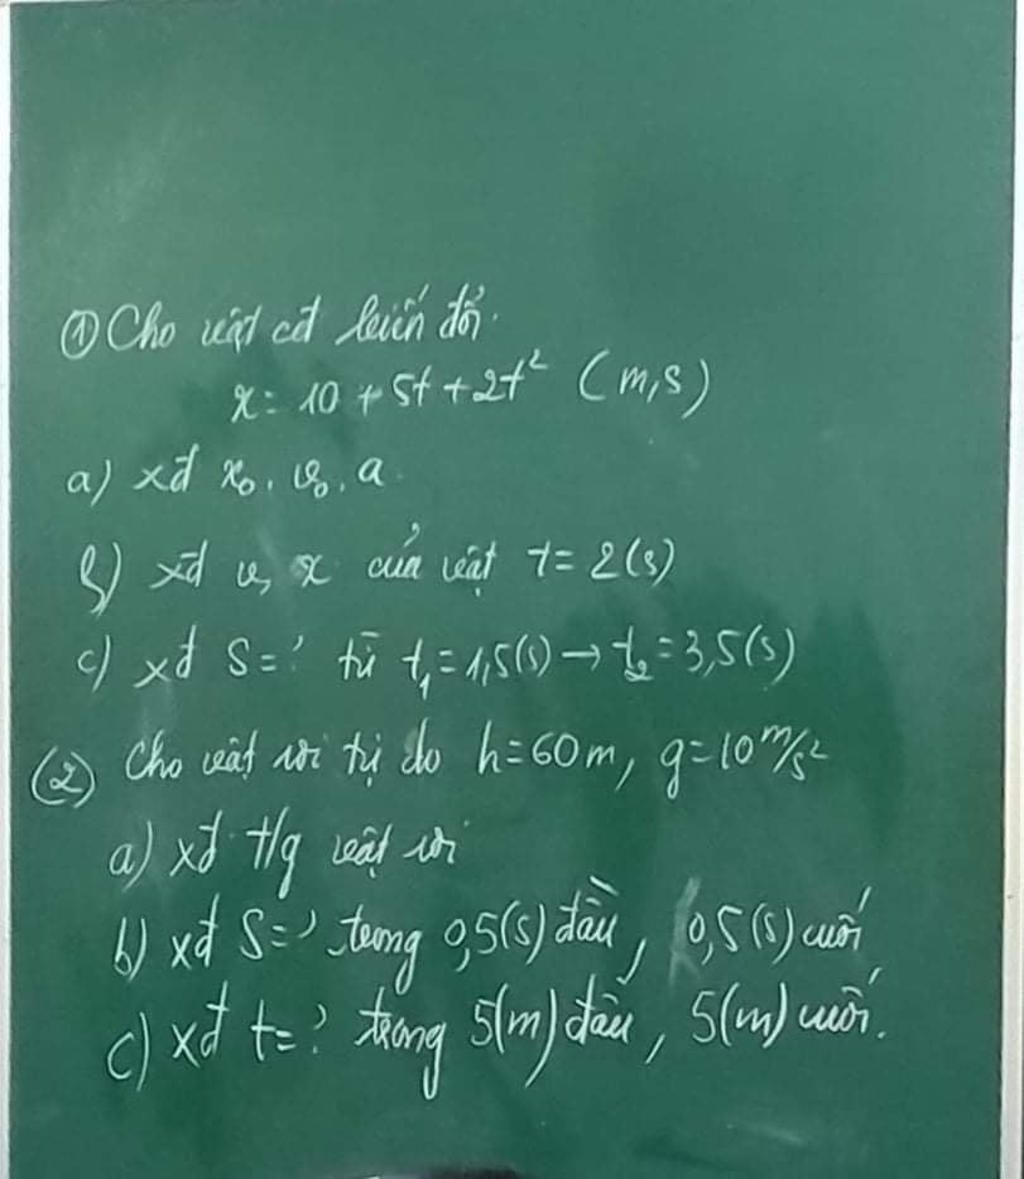 ① Cho vật cđ biến đổi.
x = 10 + 5t + 2t² (m,s)
a) xđ x₀, v₀, a.
b) xđ v, x của vật t = 2(s)
c) xđ S = ? từ t₁ = 1,5(s) → t₂ = 3,5(s)
(2) Cho vật rơi tự do h = 60m, g = 10 m/s²
a) xđ t/g vật rơi
b) xđ S = ? trong 0,5(s) đầu, 0,5(s) cuối
c) xđ t = ? trong 5(m) đầu, 5(m) cuối.